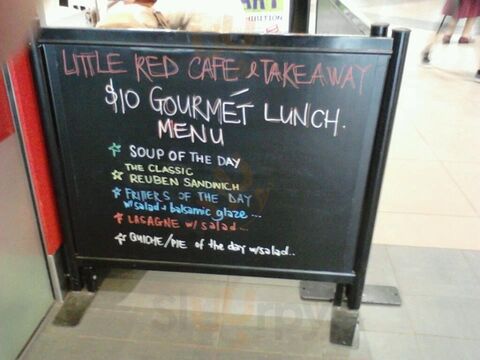 LITTLE RED CAFE & TAKEAWAY
$10 GOURMÉT LUNCH.
MENU
☆ SOUP OF THE DAY
☆ THE CLASSIC
REUBEN SANDWICH
☆ FRITTERS OF THE DAY
w/salad + balsamic glaze...
☆ LASAGNE w/ salad...
☆ QUICHE/PIE of the day w/salad..
Sluurpy